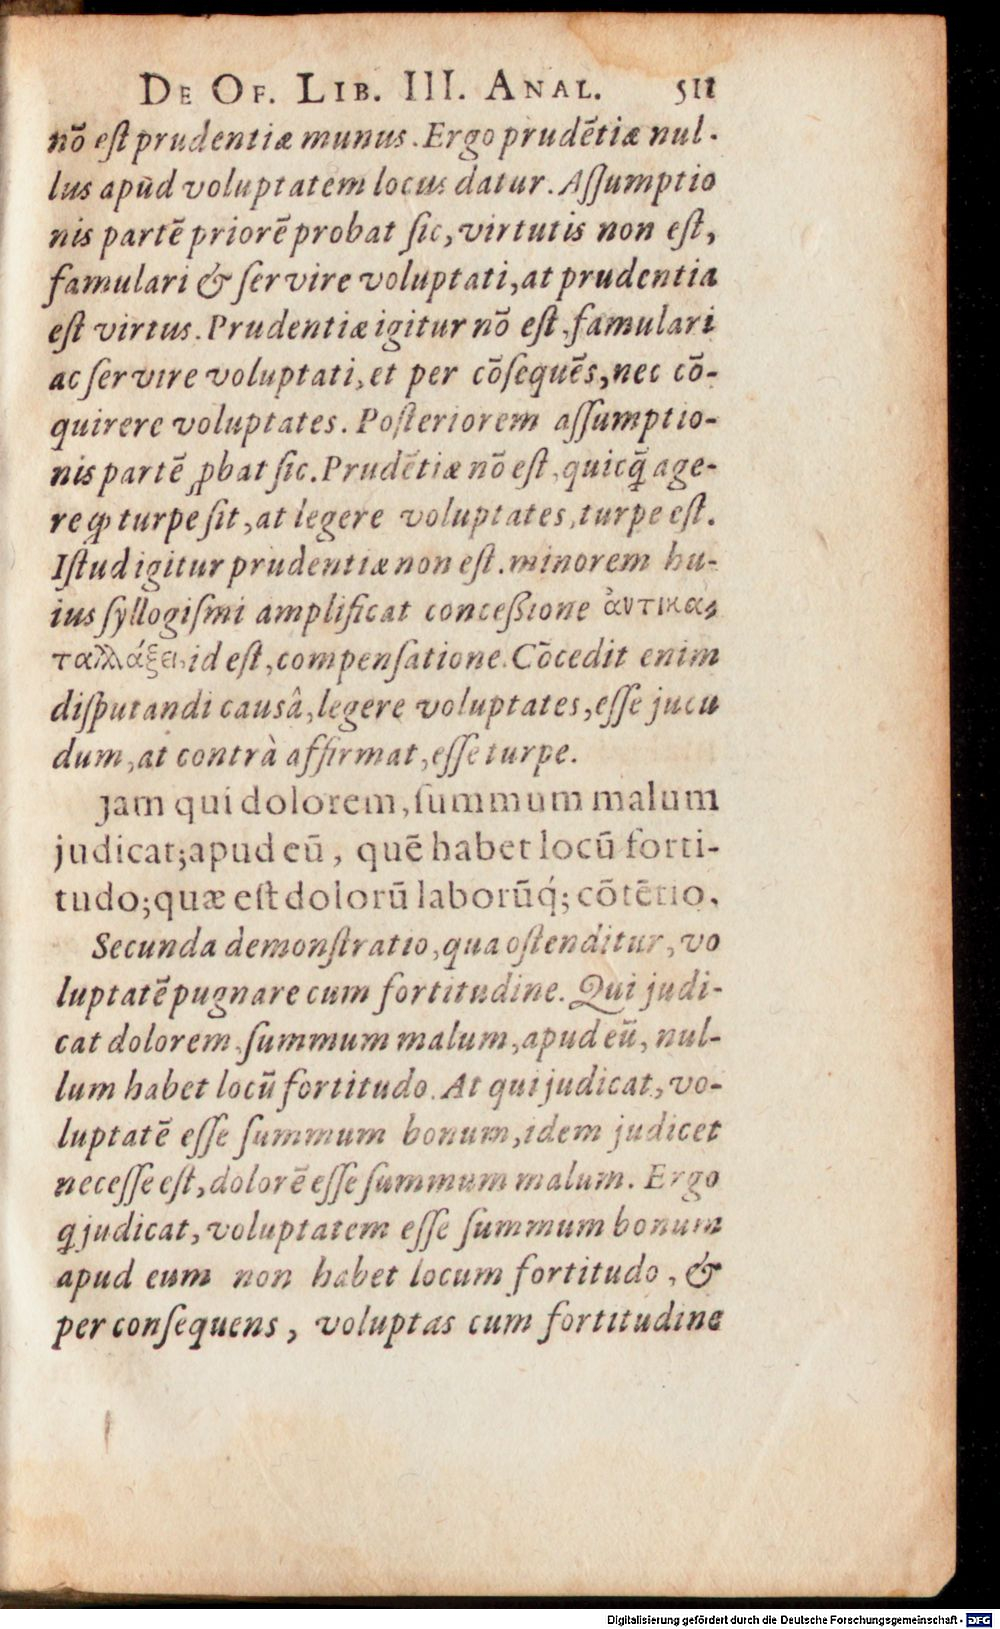 DE OF. LIB. III. ANAL. 511
nō eſt prudentiæ munus. Ergo prudētiæ nul-
lus apud voluptatem locus datur. Aſſumptio
nis partē priorē probat ſic, virtutis non eſt,
famulari & ſervire voluptati, at prudentia
est virtus. Prudentiæ igitur nō eſt, famulari
ac ſervire voluptati, et per cōſequēs, nec cō-
quirere voluptates. Poſteriorem aſſumptio-
nis partē ꝓbat ſic. Prudētiæ nō eſt, quicq̄ age-
re qđ turpe ſit, at legere voluptates, turpe eſt.
Iſtud igitur prudentiæ non eſt. minorem hu-
ius ſyllogiſmi amplificat conceßione ἀντικα-
ταλλάξει, id eſt, compenſatione. Cōcedit enim
diſputandi causâ, legere voluptates, eſſe jucu
dum, at contrà affirmat, eſſe turpe.
Jam qui dolorem, ſummum malum
judicat; apud eū, quē habet locū forti-
tudo; quæ eſt dolorū laborūq́; cōtētio.
Secunda demonſtratio, qua oſtenditur, vo
luptatē pugnare cum fortitudine. Qui judi-
cat dolorem, ſummum malum, apud eū, nul-
lum habet locū fortitudo. At qui judicat, vo-
luptatē eſſe ſummum bonum, idem judicet
neceſſe eſt, dolorē eſſe ſummum malum. Ergo
q judicat, voluptatem eſſe ſummum bonum
apud eum non habet locum fortitudo, &
per conſequens, voluptas cum fortitudine
Digitalisierung gefördert durch die Deutsche Forschungsgemeinschaft - DFG